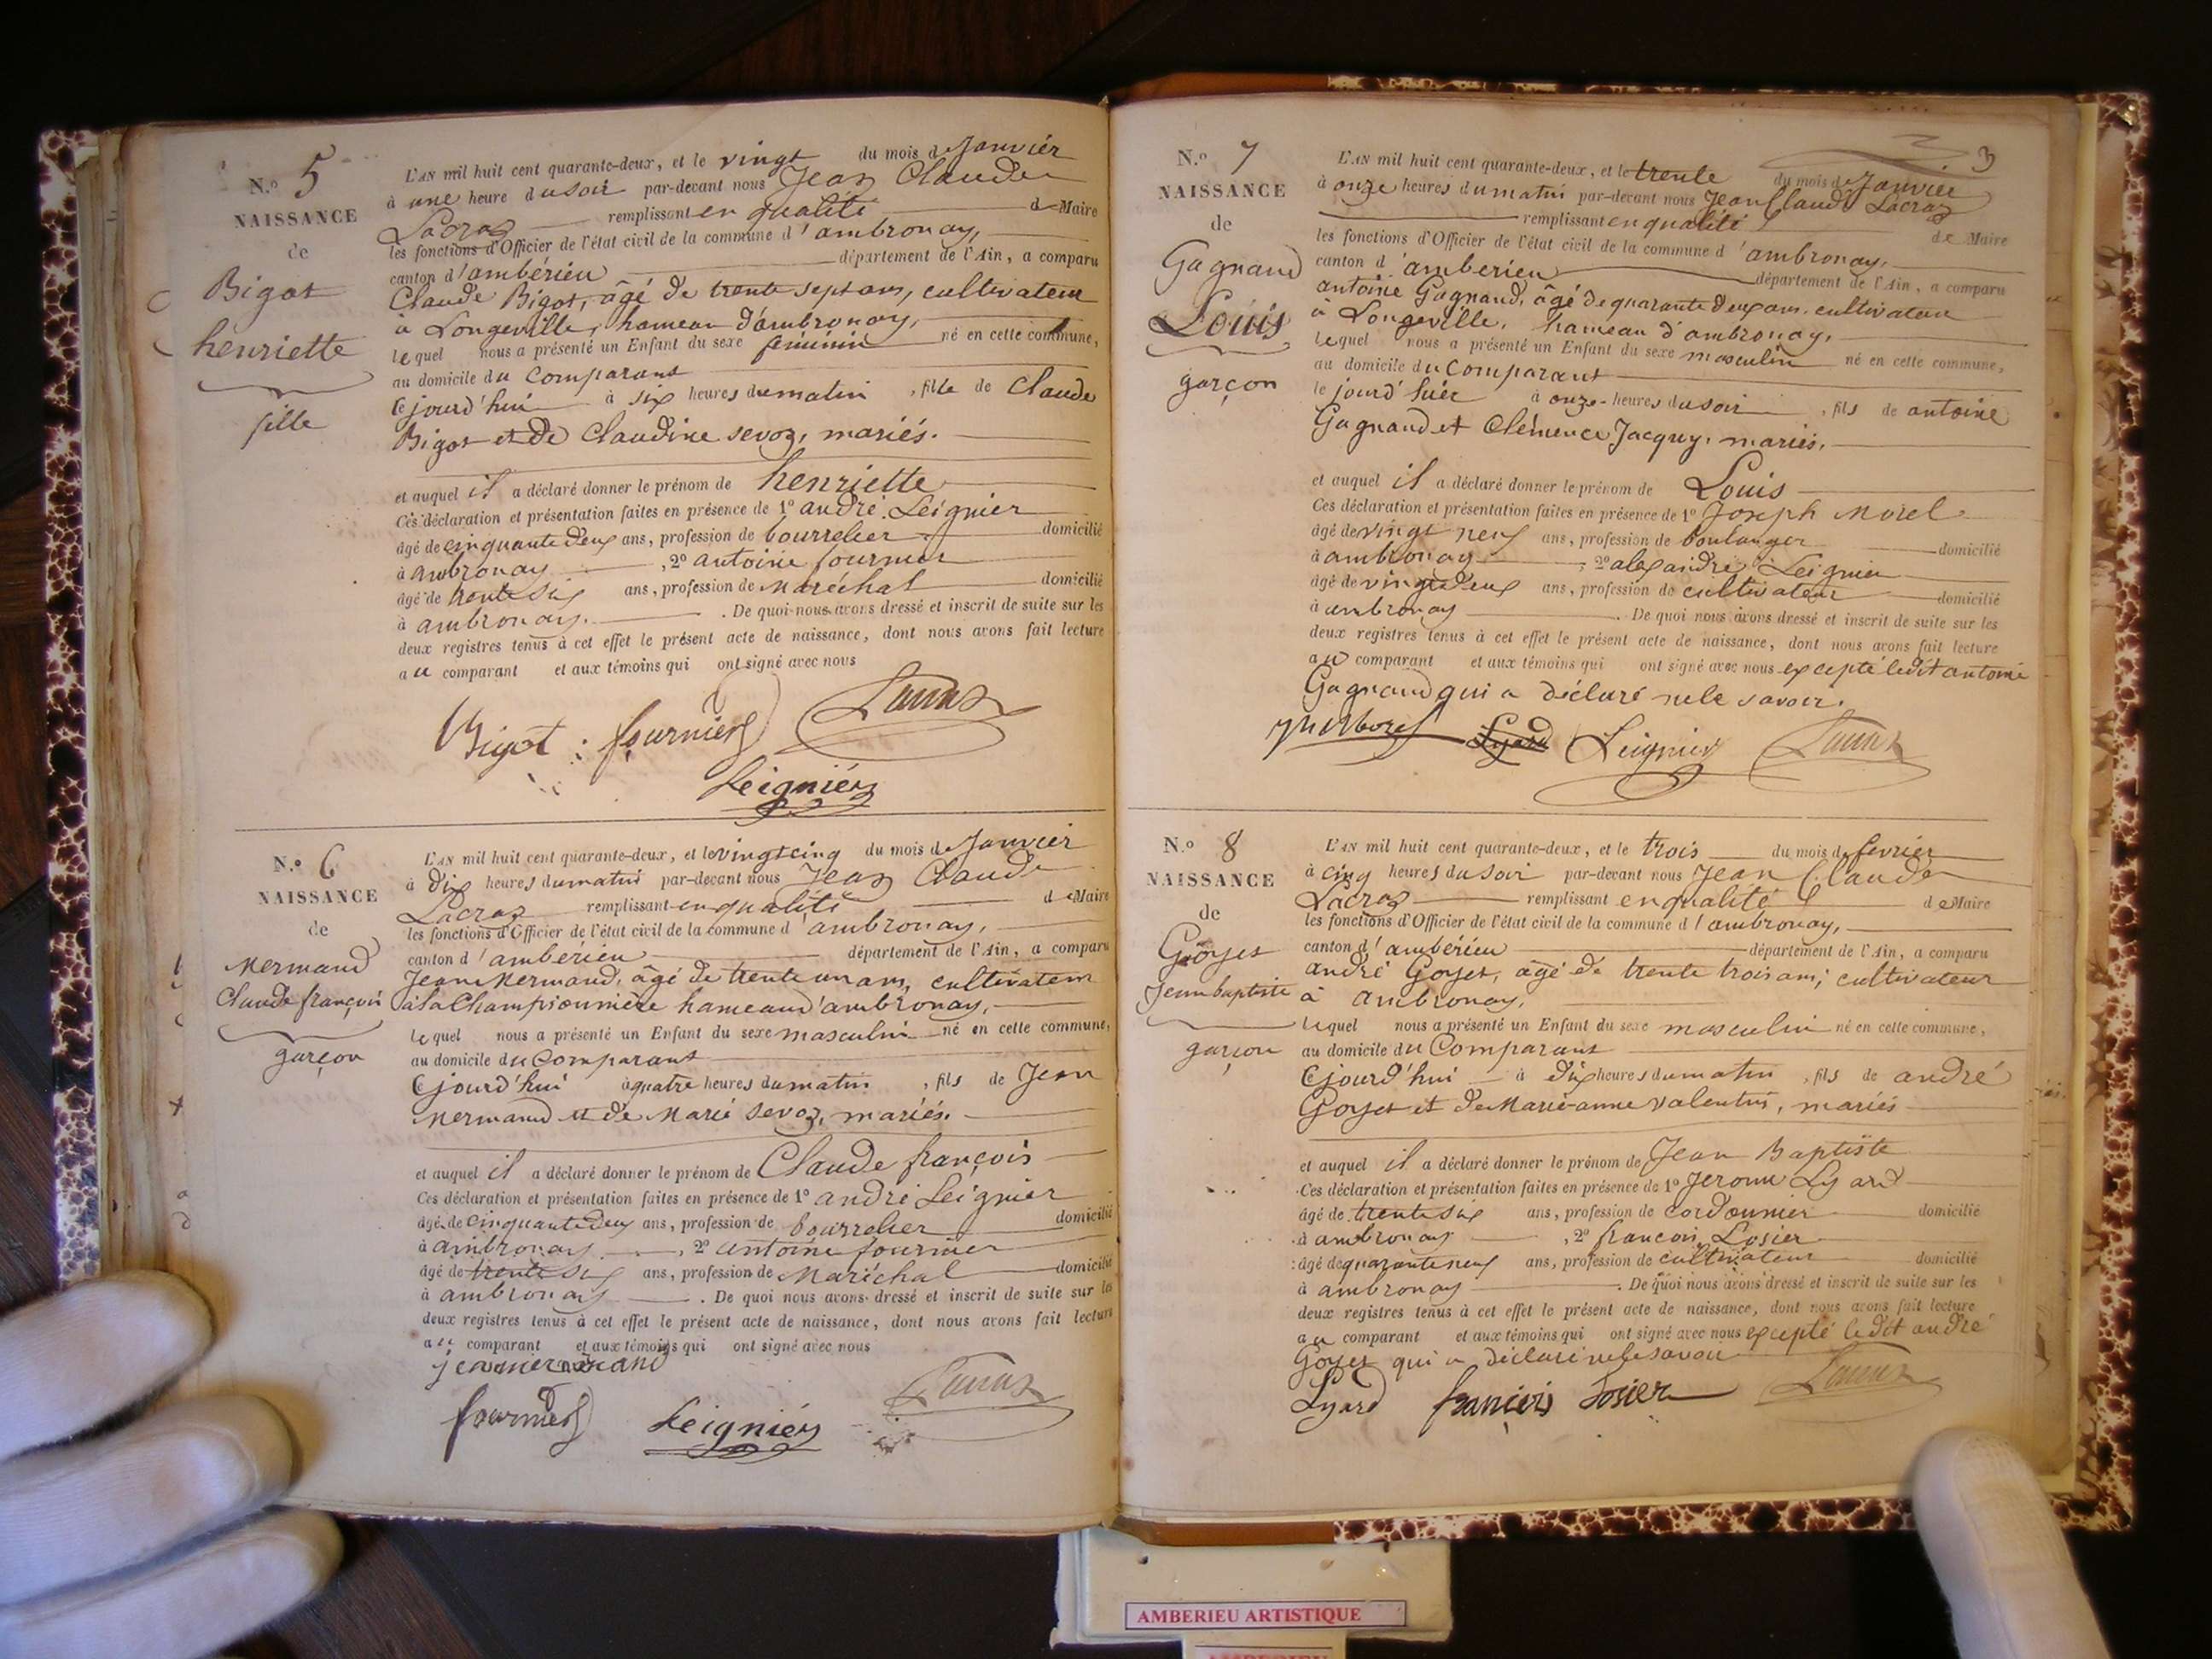 N.º 5
NAISSANCE
de
Bigot
henriette
fille
L'AN mil huit cent quarante-deux, et le vingt du mois de Janvier
à une heure du soir par-devant nous Jean Claude
Lacroz remplissant en qualité de Maire
les fonctions d'Officier de l'état civil de la commune d'ambronay,
canton d'ambérieu département de l'Ain, a comparu
Claude Bigot, âgé de trente sept ans, cultivateur
à Longeville, hameau d'ambronay,
lequel nous a présenté un Enfant du sexe féminin né en cette commune,
au domicile du Comparant
Cejourd'hui à six heures du matin, fille de Claude
Bigot et de Claudine Sevoz, mariés.
et auquel il a déclaré donner le prénom de henriette
Ces déclaration et présentation faites en présence de 1º andré Leignier
âgé de cinquante deux ans, profession de bourrelier domicilié
à ambronay, 2º antoine fournier
âgé de trente six ans, profession de Maréchal domicilié
à ambronay. De quoi nous avons dressé et inscrit de suite sur les
deux registres tenus à cet effet le présent acte de naissance, dont nous avons fait lecture
au comparant et aux témoins qui ont signé avec nous
Bigot : fournier Lacroz
Leigniér
N.º 6
NAISSANCE
de
Mermand
Claude françois
garçon
L'AN mil huit cent quarante-deux, et le vingt cinq du mois de Janvier
à dix heures du matin par-devant nous Jean Claude
Lacroz remplissant en qualité de Maire
les fonctions d'Officier de l'état civil de la commune d'ambronay,
canton d'ambérieu département de l'Ain, a comparu
Jean Mermand, âgé de trente un ans, cultivateur
à la Championnière hameau d'ambronay,
lequel nous a présenté un Enfant du sexe masculin né en cette commune,
au domicile du Comparant
Cejourd'hui à quatre heures du matin, fils de Jean
Mermand et de Marie Sevoz, mariés.
et auquel il a déclaré donner le prénom de Claude françois
Ces déclaration et présentation faites en présence de 1º andré Leignier
âgé de cinquante deux ans, profession de bourrelier domicilié
à ambronay, 2º antoine fournier
âgé de trente six ans, profession de Maréchal domicilié
à ambronay. De quoi nous avons dressé et inscrit de suite sur les
deux registres tenus à cet effet le présent acte de naissance, dont nous avons fait lecture
au comparant et aux témoins qui ont signé avec nous
jean mermand
fournier Leigniér Lacroz
3
N.º 7
NAISSANCE
de
Gagnand
Louis
garçon
L'AN mil huit cent quarante-deux, et le trente du mois de Janvier
à onze heures du matin par-devant nous Jean Claude Lacroz
remplissant en qualité de Maire
les fonctions d'Officier de l'état civil de la commune d'ambronay,
canton d'amberieu département de l'Ain, a comparu
antoine Gagnand, âgé de quarante deux ans, cultivateur
à Longeville, hameau d'ambronay,
lequel nous a présenté un Enfant du sexe masculin né en cette commune,
au domicile du Comparant
le jourd'hier à onze heures du soir, fils de antoine
Gagnand et Clémence Jacquy, mariés.
et auquel il a déclaré donner le prénom de Louis
Ces déclaration et présentation faites en présence de 1º Joseph Morel
âgé de vingt neuf ans, profession de boulanger domicilié
à ambronay, 2º alexandre Leignier
âgé de vingt deux ans, profession de cultivateur domicilié
à ambronay. De quoi nous avons dressé et inscrit de suite sur les
deux registres tenus à cet effet le présent acte de naissance, dont nous avons fait lecture
au comparant et aux témoins qui ont signé avec nous excepté ledit antoine
Gagnand qui a déclaré ne le savoir.
Jh Morel Lyard Leignier Lacroz
N.º 8
NAISSANCE
de
Goyet
Jean baptiste
garçon
L'AN mil huit cent quarante-deux, et le trois du mois de fevrier
à cinq heures du soir par-devant nous Jean Claude
Lacroz remplissant en qualité de Maire
les fonctions d'Officier de l'état civil de la commune d'ambronay,
canton d'ambérieu département de l'Ain, a comparu
andré Goyet, âgé de trente trois ans, cultivateur
à ambronay,
lequel nous a présenté un Enfant du sexe masculin né en cette commune,
au domicile du Comparant
Cejourd'hui à dix heures du matin, fils de andré
Goyet et de Marie-anne Valentin, mariés
et auquel il a déclaré donner le prénom de Jean Baptiste
Ces déclaration et présentation faites en présence de 1º Jerome Lyard
âgé de trente six ans, profession de cordonnier domicilié
à ambronay, 2º francois Losier
âgé de quarante neuf ans, profession de cultivateur domicilié
à ambronay. De quoi nous avons dressé et inscrit de suite sur les
deux registres tenus à cet effet le présent acte de naissance, dont nous avons fait lecture
au comparant et aux témoins qui ont signé avec nous excepté ledit andré
Goyet qui a déclaré ne le savoir
Lyard françois Losier Lacroz
AMBERIEU ARTISTIQUE